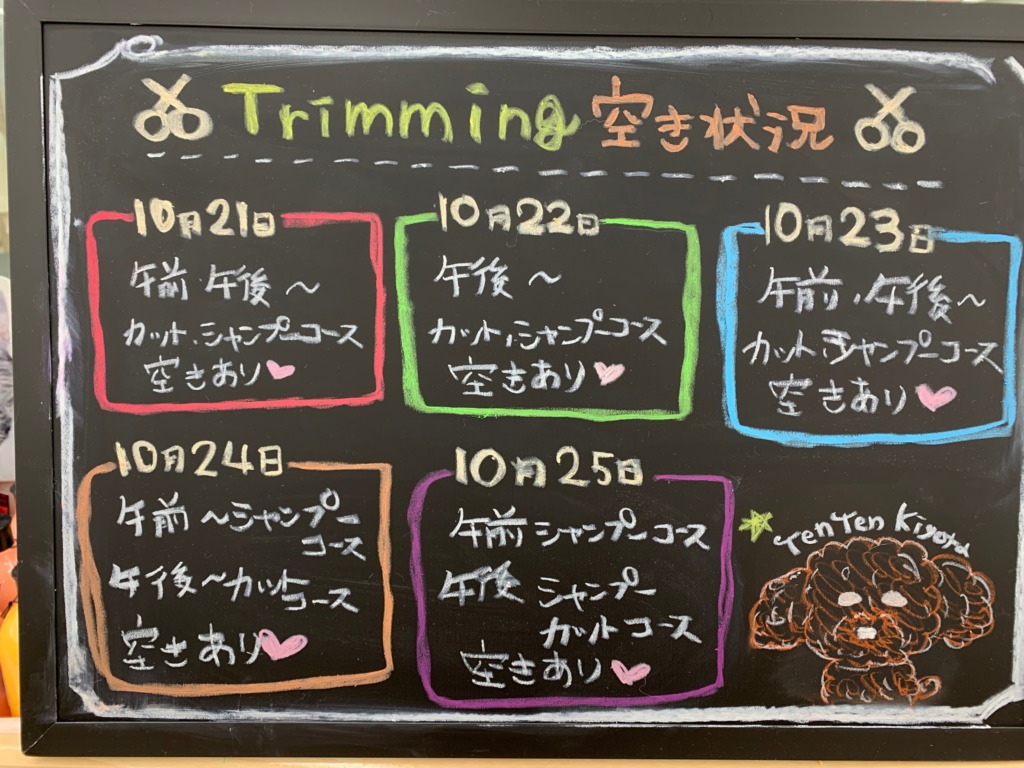 Trimming 空き状況
10月21日
午前 午後～
カット、シャンプーコース
空きあり
10月22日
午後～
カット、シャンプーコース
空きあり
10月23日
午前、午後～
カット、シャンプーコース
空きあり
10月24日
午前～シャンプー
コース
午後～カットコース
空きあり
10月25日
午前シャンプーコース
午後 シャンプー
カットコース
空きあり
TenTen Kiyota